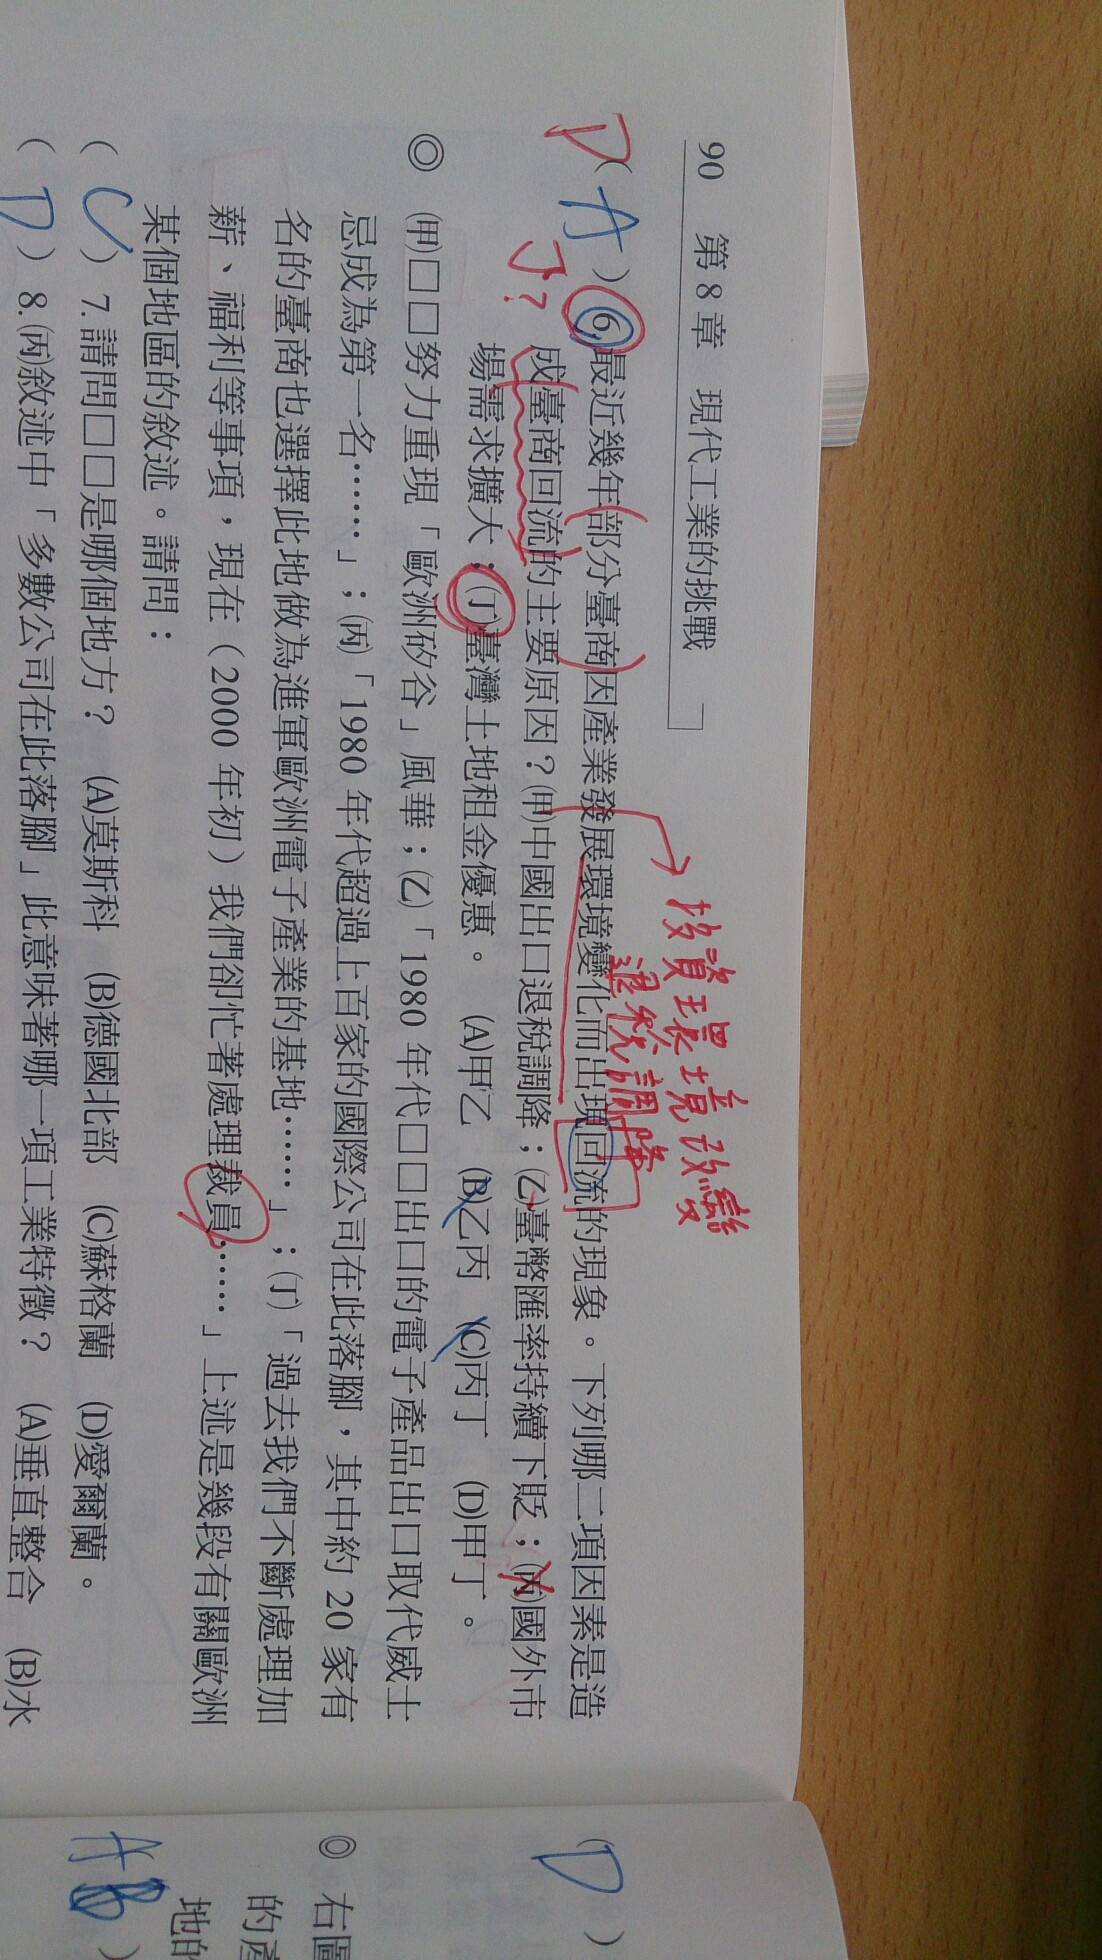 90 第8章 現代工業的挑戰
投資環境改變
退稅調降
D
( A ) 6. 最近幾年部分臺商因產業發展環境變化而出現回流的現象。下列哪二項因素是造
成臺商回流的主要原因？(甲)中國出口退稅調降；(乙)臺幣匯率持續下貶；(丙)國外市
場需求擴大；(丁)臺灣土地租金優惠。 (A)甲乙 (B)乙丙 (C)丙丁 (D)甲丁。
丁?
◎ (甲)□□努力重現「歐洲矽谷」風華；(乙)「1980年代□□出口的電子產品出口取代威士
忌成為第一名……」；(丙)「1980年代超過上百家的國際公司在此落腳，其中約20家有
名的臺商也選擇此地做為進軍歐洲電子產業的基地……」；(丁)「過去我們不斷處理加
薪、福利等事項，現在（2000年初）我們卻忙著處理裁員……」上述是幾段有關歐洲
某個地區的敘述。請問：
( C ) 7. 請問□□是哪個地方？ (A)莫斯科 (B)德國北部 (C)蘇格蘭 (D)愛爾蘭。
( D ) 8. (丙)敘述中「多數公司在此落腳」此意味著哪一項工業特徵？ (A)垂直整合 (B)水
( D )
◎ 右圖
的產
地的
A B )